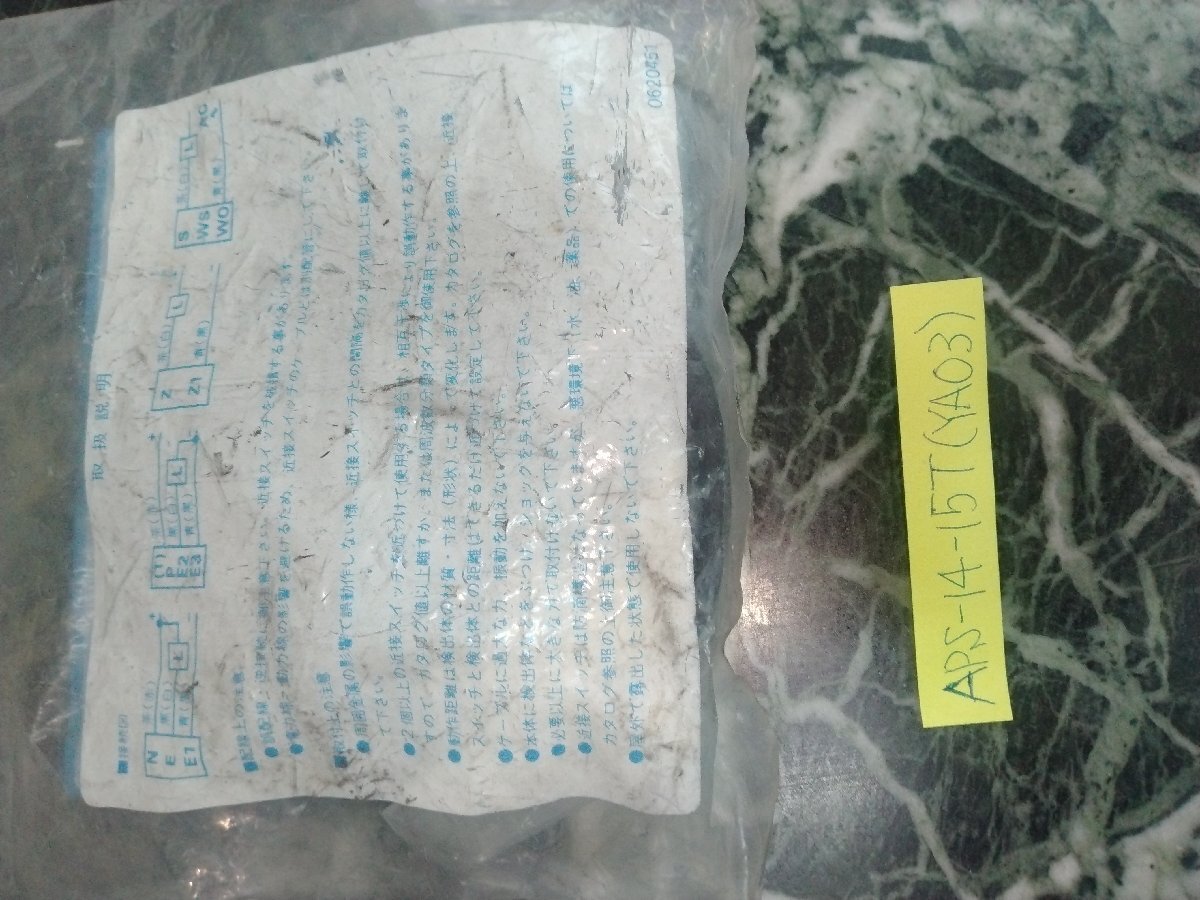 取扱説明
■接続図
N
E
E1
茶(赤)
黒(白)
青(黒)
L
(1)
P
E2
E3
茶(赤)
黒(白)
青(黒)
L
Z
Z1
茶(白)
青(黒)
L
S
WS
WO
茶(白)
青(黒)
L
AC
■配線上の注意
●誤配線、逆接続に御注意下さい。近接スイッチを破損する事があります。
●電力線・動力線の影響を避けるため、近接スイッチのケーブルとは別配管にして下さい。
■取付上の注意
●周囲金属の影響で誤動作しない様、近接スイッチとの間隔をカタログ値以上に離して取付け
て下さい。
●2個以上の近接スイッチを近づけて使用する場合は、相互干渉により誤動作する事がありま
すので、カタログ値以上離すか、または周波数分離タイプを御使用下さい。
●動作距離は検出体の材質・寸法(形状)によって変化します。カタログを参照の上、近接
スイッチと検出体との距離はできるだけ近づけて設定して下さい。
●ケーブルに過大な力、振動を加えないで下さい。
●本体に検出体などをぶつけ、ショックを与えないで下さい。
●必要以上に大きな力で取付けないで下さい。
●近接スイッチは防滴構造になっていますが、悪環境下(水、油、薬品)での使用については
カタログ参照の上御注意下さい。
●屋外で露出した状態で使用しないで下さい。
0620451
APS-14-15T(YA03)